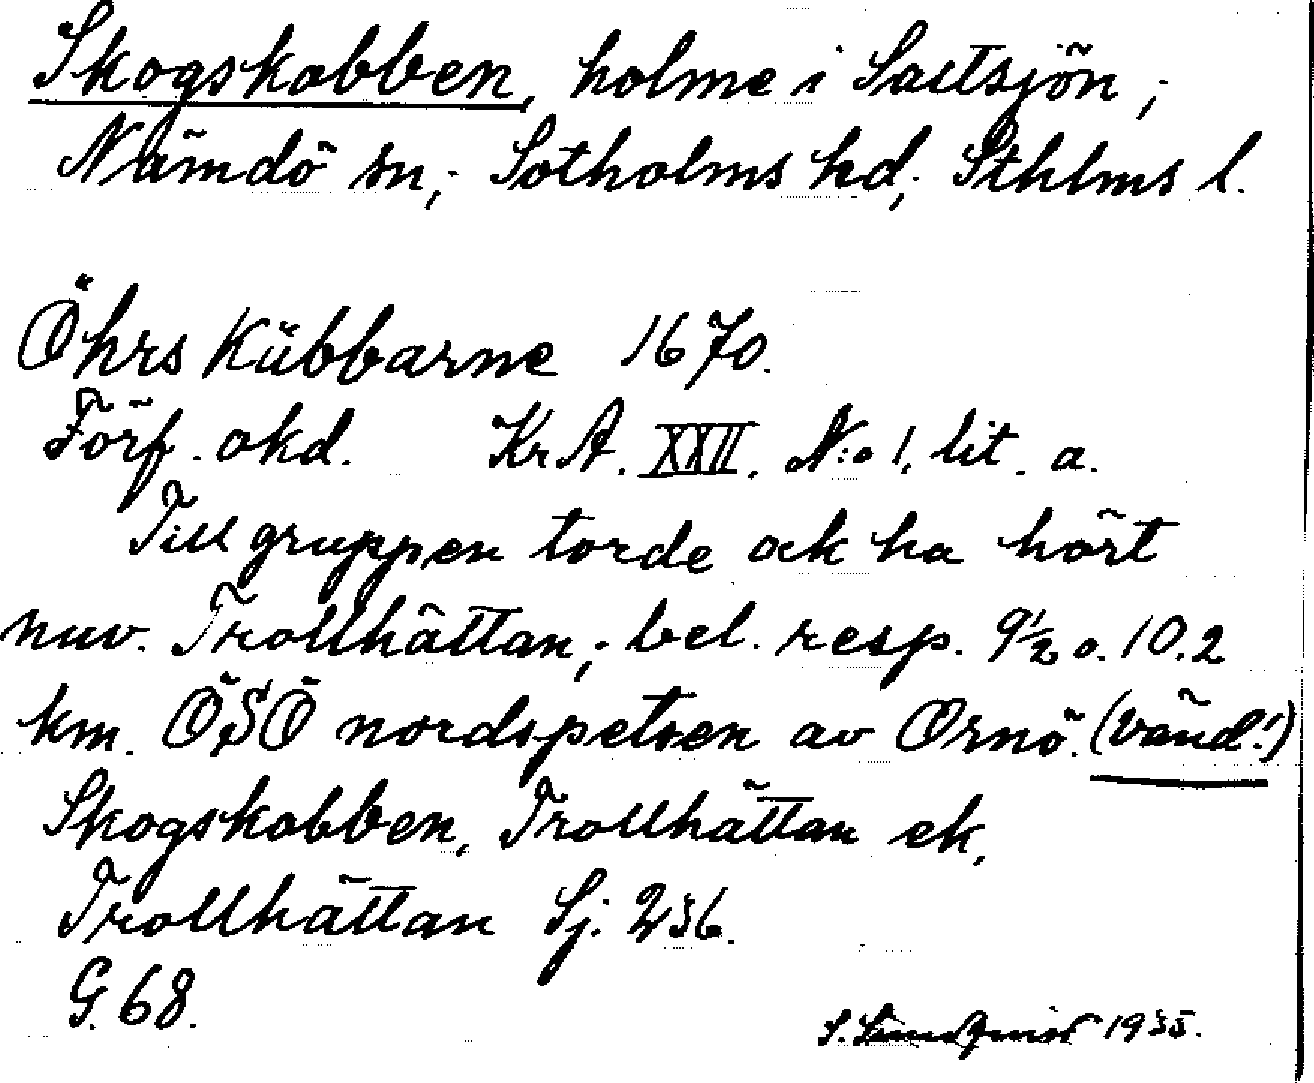 Skogskobben, holme i Saltsjön;
Nämdö sn; Sotholms hd; Sthlms l.
Öhrs Kübbarne 1670.
Förf. okd. KrA. XXII. N:o 1. lit. a.
Till gruppen torde ock ha hört
nuv. Trollhättan; bel. resp. 9½ o. 10.2
km. ÖSÖ nordspetsen av Ornö. (Vänd!)
Skogskobben, Trollhättan ek,
Trollhättan Sj. 236.
G. 68.
S. 1935.